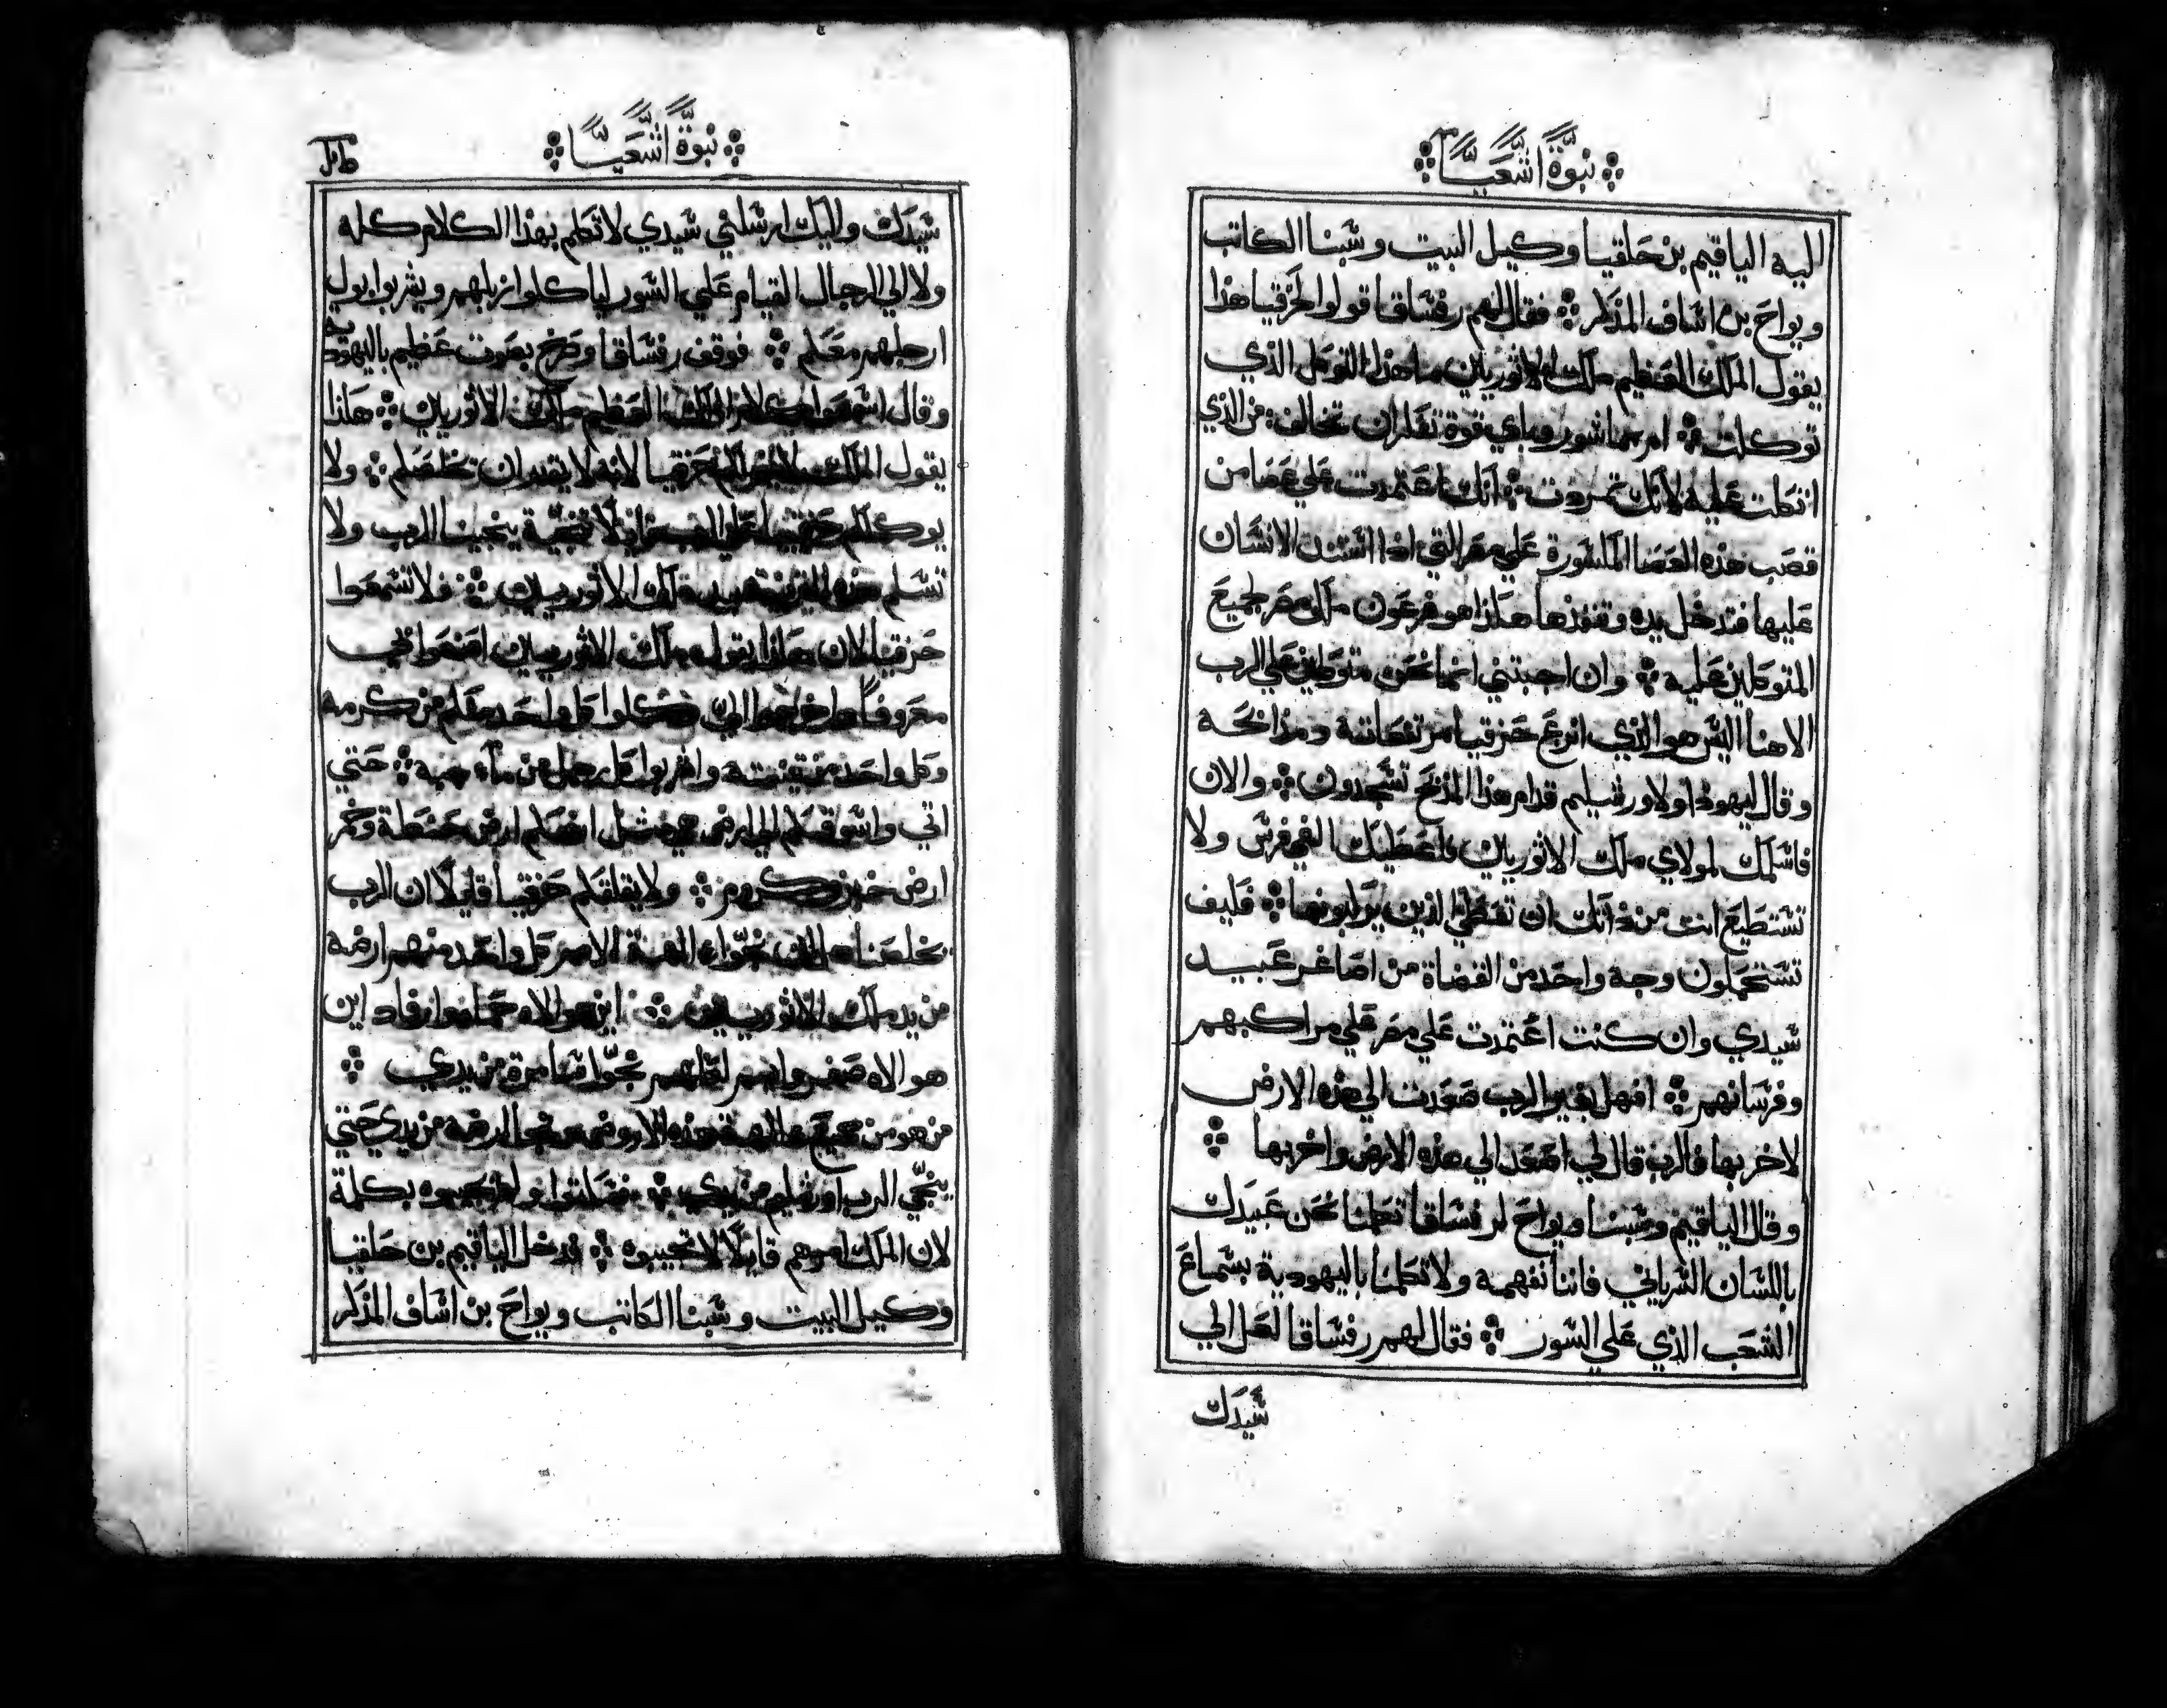 نبوة اشعيا
اليه الياقيم بن حلقيا وكيل البيت وشبنا الكاتب
ويواح بن اساف المذكر فقال لهم رفساقا قولوا لحزقيا هذا
يقول الملك العظيم ملك الاثوريين ما هذا التوكل الذي
توكلت ام بمشورة وباي قوة تقدر ان تخالف من الذي
اتكلت عليه لانك تمردت انك اعتمدت علي عصا من
قصب هذه العصا المكسورة علي مصر التي اذا استند الانسان
عليها فتدخل يده وتنفذها هكذا هو فرعون ملك مصر لجميع
المتوكلين عليه وان اجبتني انما نحن متوكلين علي الرب
الاهنا اليس هو الذي انزع حزقيا مرتفعاته ومذابحه
وقال ليهودا ولاورشليم قدام هذا المذبح تسجدون والان
فاسلمك لمولاي ملك الاثوريين فاعطيك الفي فرس ولا
تستطيع انت من ذاتك ان تعطي الذين يركبونها فكيف
تستحملون وجه واحد من القضاة من اصاغر عبيد
سيدي وان كنت اعتمدت علي مصر علي مراكبهم
وفرسانهم افهل بغير الرب صعدت الي هذه الارض
لاخربها فالرب قال لي اصعد الي هذه الارض واخربها
وقال الياقيم وشبنا ويواح لرفساقا تكلمنا نحن عبيدك
باللسان السرياني فاننا نفهمه ولا تكلمنا باليهودية بسماع
الشعب الذي علي السور فقال لهم رفساقا لعل الي
سيدك
نبوة اشعيا
سيدك واليك ارسلني سيدي لاتكلم بهذا الكلام كله
ولا الي الرجال القيام علي السور لياكلوا زبلهم ويشربوا بول
ارجلهم معكم فوقف رفساقا وصرخ بصوت عظيم باليهودية
وقال اسمعوا كلام الملك العظيم ملك الاثوريين هكذا
يقول الملك لا حزقيا لانه لا يقدر ان يخلصكم ولا
حزقيا ينجينا الرب ولا
تسلم هذه المدينة بيد ملك الاثوريين فلا تسمعوا
حزقيا لان هكذا يقول ملك الاثوريين اصنعوا معي
معروفا واخرجوا الي كل واحد منكم من كرمه
وكل واحد من تينته واشربوا كل رجل من ماء جبه حتي
اتي واسوقكم الي ارض هي مثل ارضكم ارض حنطة وخمر
ارض خبز وكروم ولا يقلقكم حزقيا قايلا ان الرب
يخلصنا الهة الامم كل واحد منهم ارضه
من يد ملك الاثوريين اين هو الاه حماه وارفاد اين
هو الاه صفروايم لعلهم نجوا سامرة من يدي
من هو من جميع الهة هذه الارض من نجا ارضه من يدي حتي
ينجي الرب اورشليم من يدي فسكتوا ولم يجيبوه بكلمة
لان الملك امرهم قايلا لا تجيبوه فدخل الياقيم بن حلقيا
وكيل البيت وشبنا الكاتب ويواح بن اساف المذكر